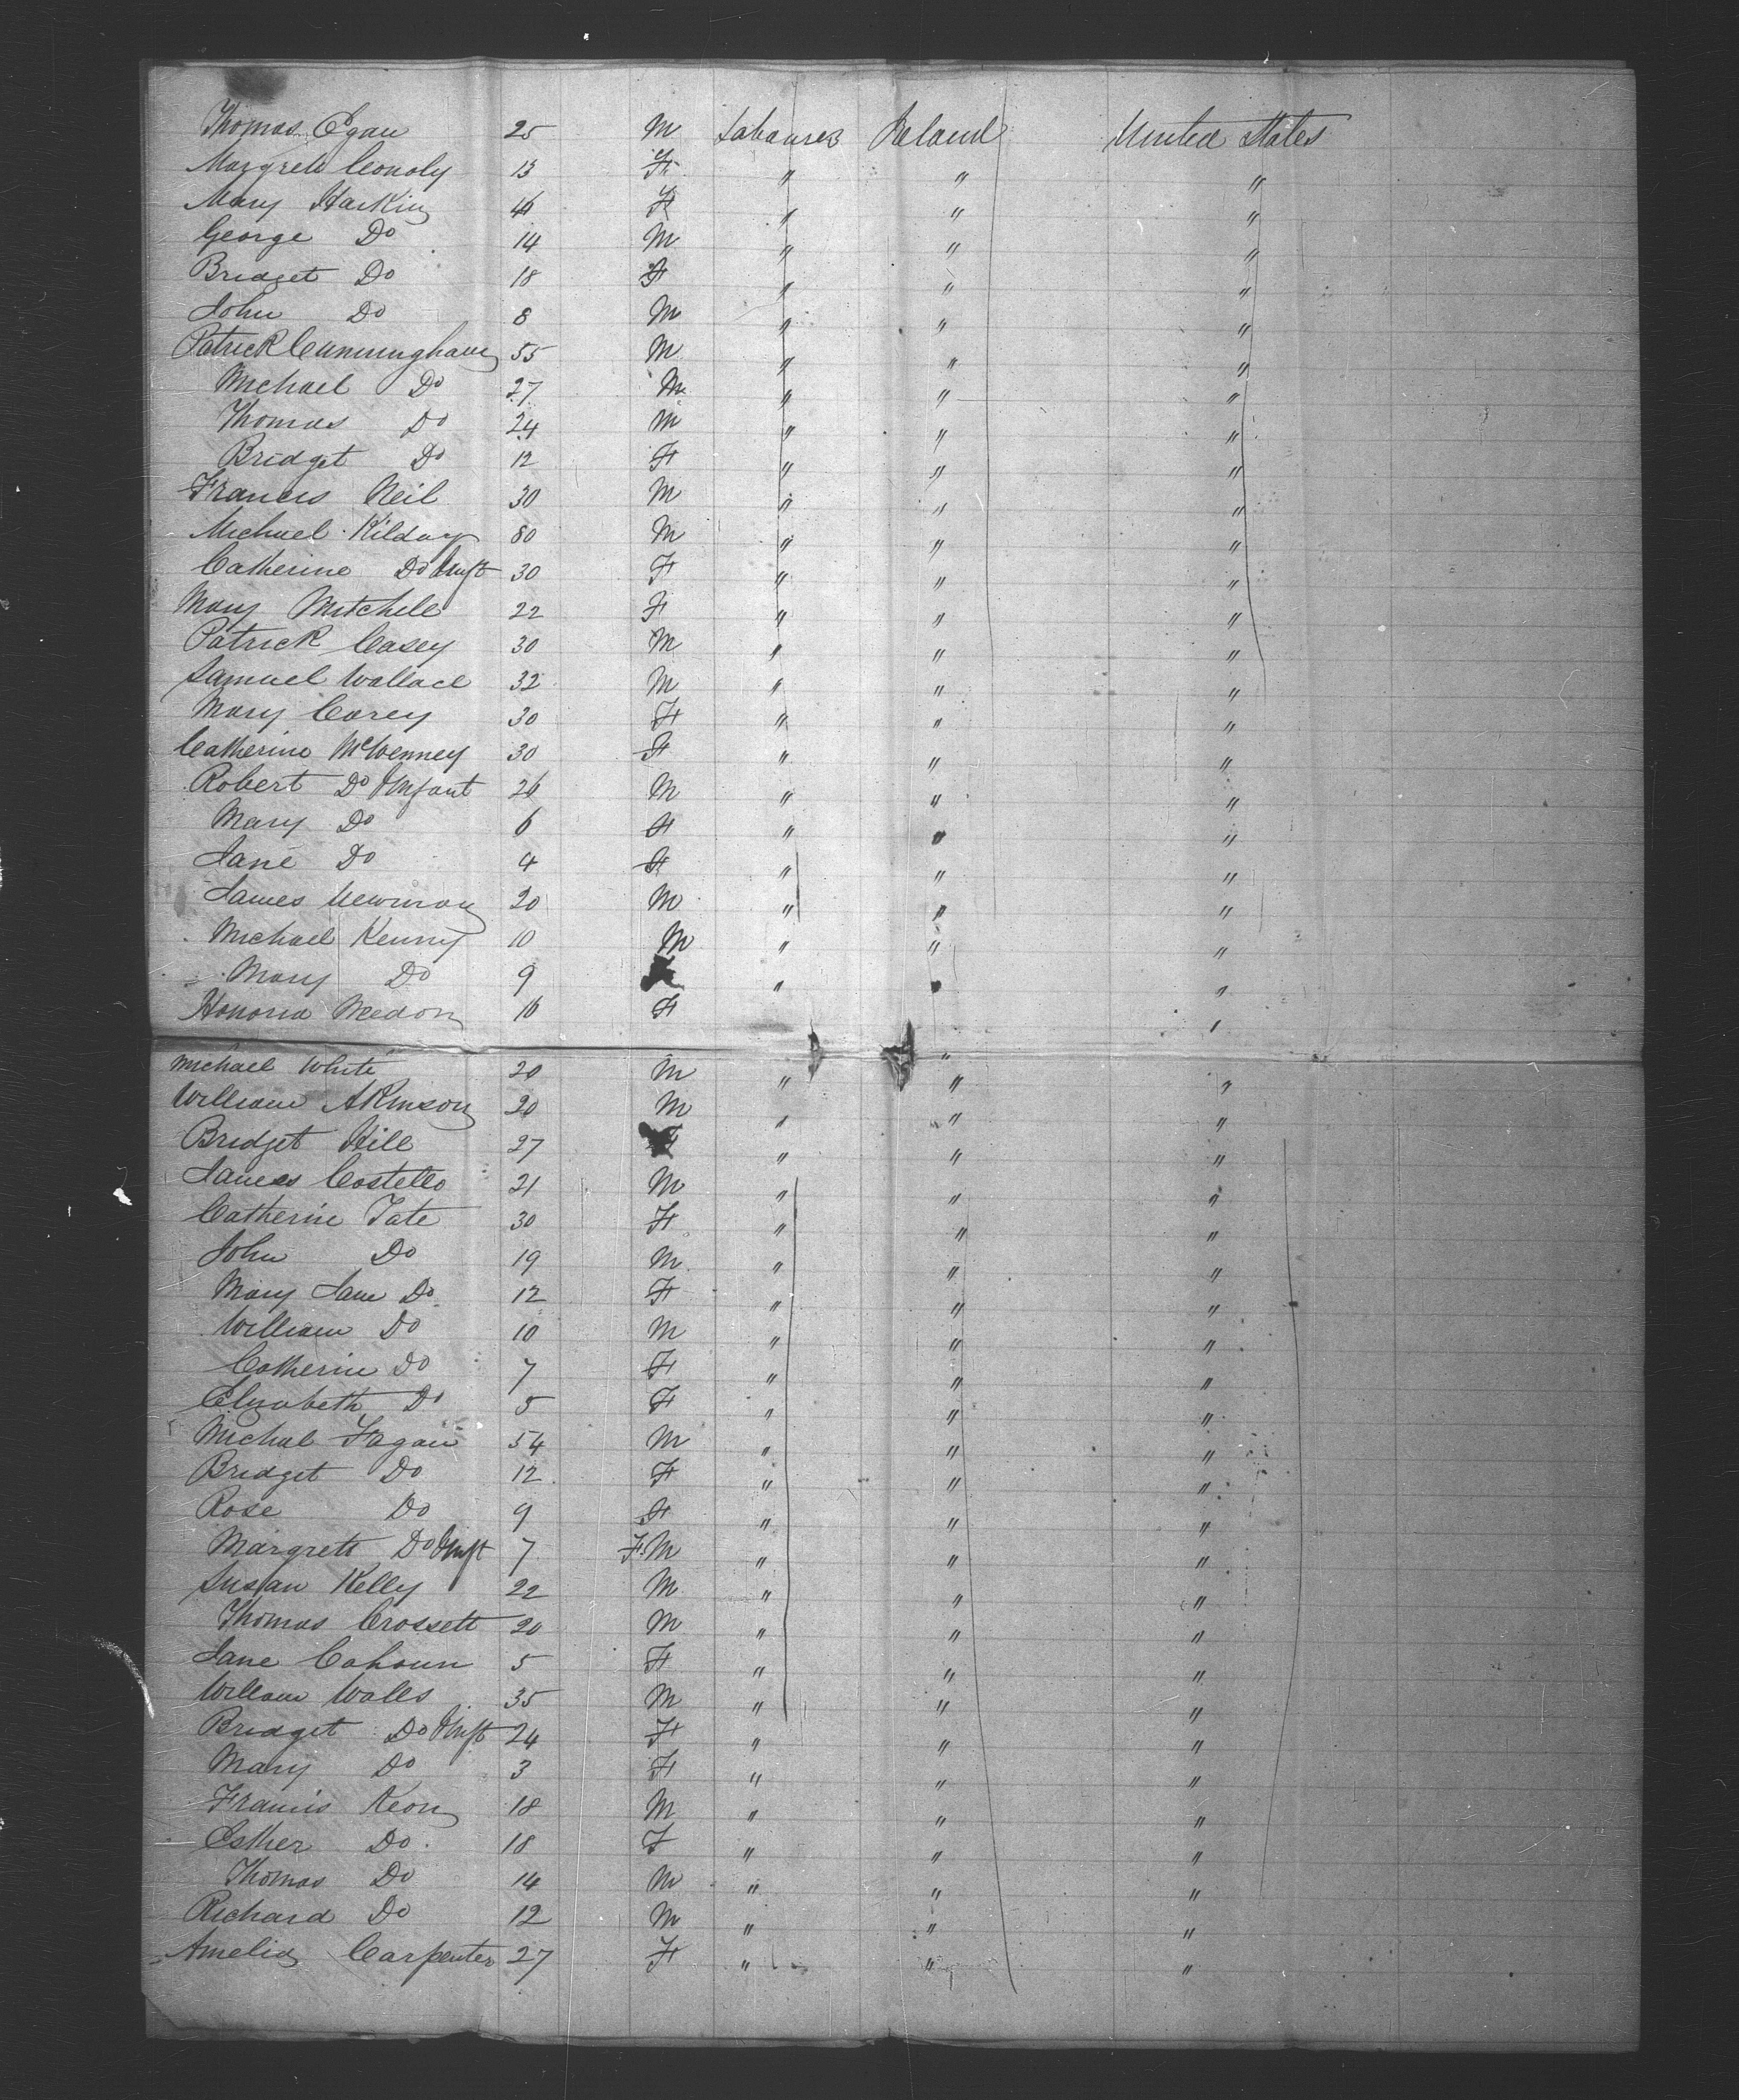 Thomas Egan 25 M Labourer Ireland United States
Margrett Conoly 13 F " " "
Mary Harkin 46 F " " "
George Do 14 M " " "
Bridget Do 18 F " " "
John Do 8 M " " "
Patrick Cunningham 55 M " " "
Michael Do 27 M " " "
Thomas Do 24 M " " "
Bridget Do 12 F " " "
Francis Neil 30 M " " "
Michael Kilday 80 M " " "
Catherine Do & Inft 30 F " " "
Mary Mitchell 22 F " " "
Patrick Casey 30 M " " "
Samuel Wallace 32 M " " "
Mary Carey 30 F " " "
Catherine 30 F " " "
Robert Do & Infant 26 M " " "
Mary Do 6 F " " "
Jane Do 4 F " " "
James Newman 20 M " " "
Michael Kenny 10 M " " "
Mary Do 9 " " "
Honoria 16 F " "
Michael White 20 M " " "
William Akinson 20 M " " "
Bridget Hill 27 F " " "
James Costello 21 M " " "
Catherine Tate 30 F " " "
John Do 19 M " " "
Mary Jane Do 12 F " " "
William Do 10 M " " "
Catherine Do 7 F " " "
Elizabeth Do 5 F " " "
Michal Fagan 54 M " " "
Bridget Do 12 F " " "
Rose Do 9 F " " "
Margrett Do & Inft 7 F. M " " "
Susan Kelly 22 M " " "
Thomas Crossett 20 M " " "
Jane Cahoun 5 F " " "
William Walls 35 M " " "
Bridget Do & Inft 24 F " " "
Mary Do 3 F " " "
Francis Keon 18 M " " "
Esther Do 18 F " " "
Thomas Do 14 M " " "
Richard Do 12 M " " "
Amelia Carpenter 27 F " " "